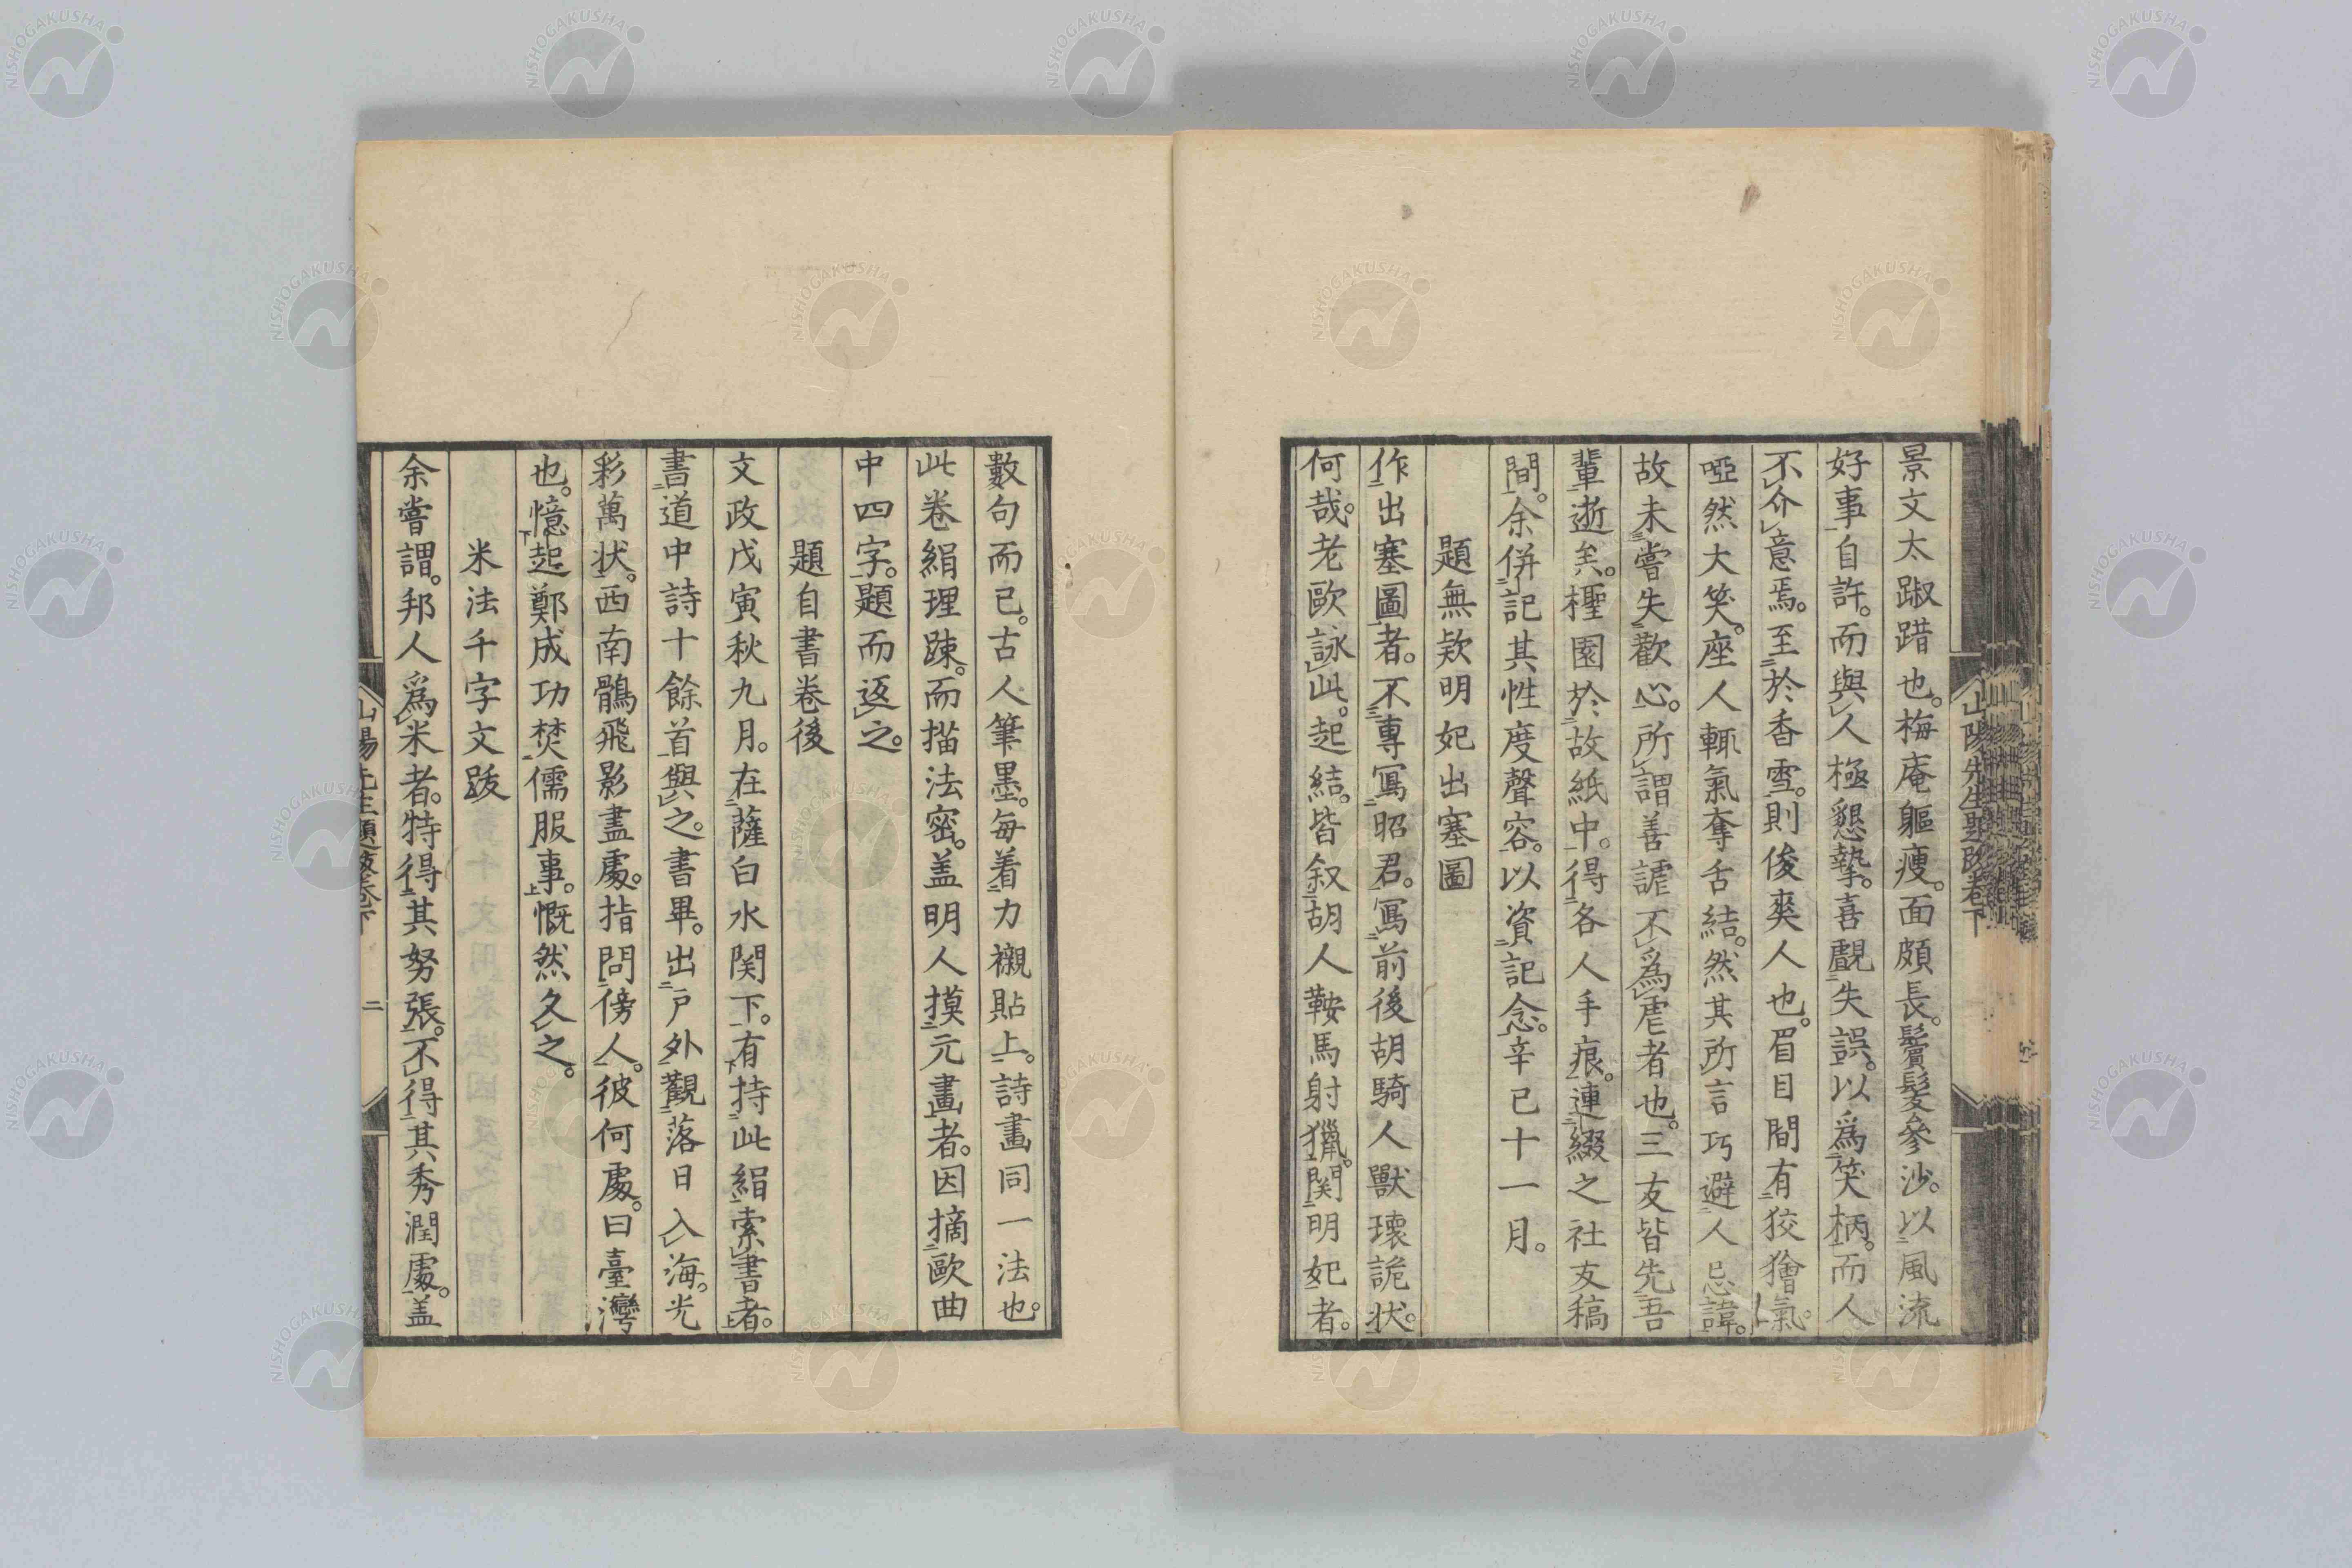 景文太踧踖也。梅庵軀瘦。面頗長。鬢髮參沙。以風流
好事自許。而與人極懇摯。喜覻失誤。以爲笑柄。而人
不介意焉。至於香雪。則俊爽人也。眉目間有狡獪氣。
啞然大笑。座人輒氣奪舌結。然其所言巧避人忌諱。
故未嘗失歡心。所謂善謔不爲虐者也。三友皆先吾
輩逝矣。檉園於故紙中。得各人手痕。連綴之社友稿
間。余併記其性度聲容。以資記念。辛已十一月。
題無欵明妃出塞圖
作出塞圖者。不專寫昭君。寫前後胡騎人獸瓌詭狀。
何哉。老歐詠此。起結。皆叙胡人鞍馬射獵。関明妃者。
山陽先生題跋卷下
數句而已。古人筆墨。每着力襯貼上。詩畫同一法也。
此卷絹理踈。而描法密。盖明人摸元畫者。因摘歐曲
中四字。題而返之。
題自書卷後
文政戊寅秋九月。在薩白水関下。有持此絹索書者。
書道中詩十餘首與之。書畢。出戸外觀落日入海。光
彩萬状。西南鶻飛影盡處。指問傍人。彼何處。曰臺灣
也。憶起鄭成功焚儒服事。慨然久之。
米法千字文跋
余嘗謂。邦人爲米者。特得其努張。不得其秀潤處。盖
山陽先生題跋卷下 二
NISHOGAKUSHA